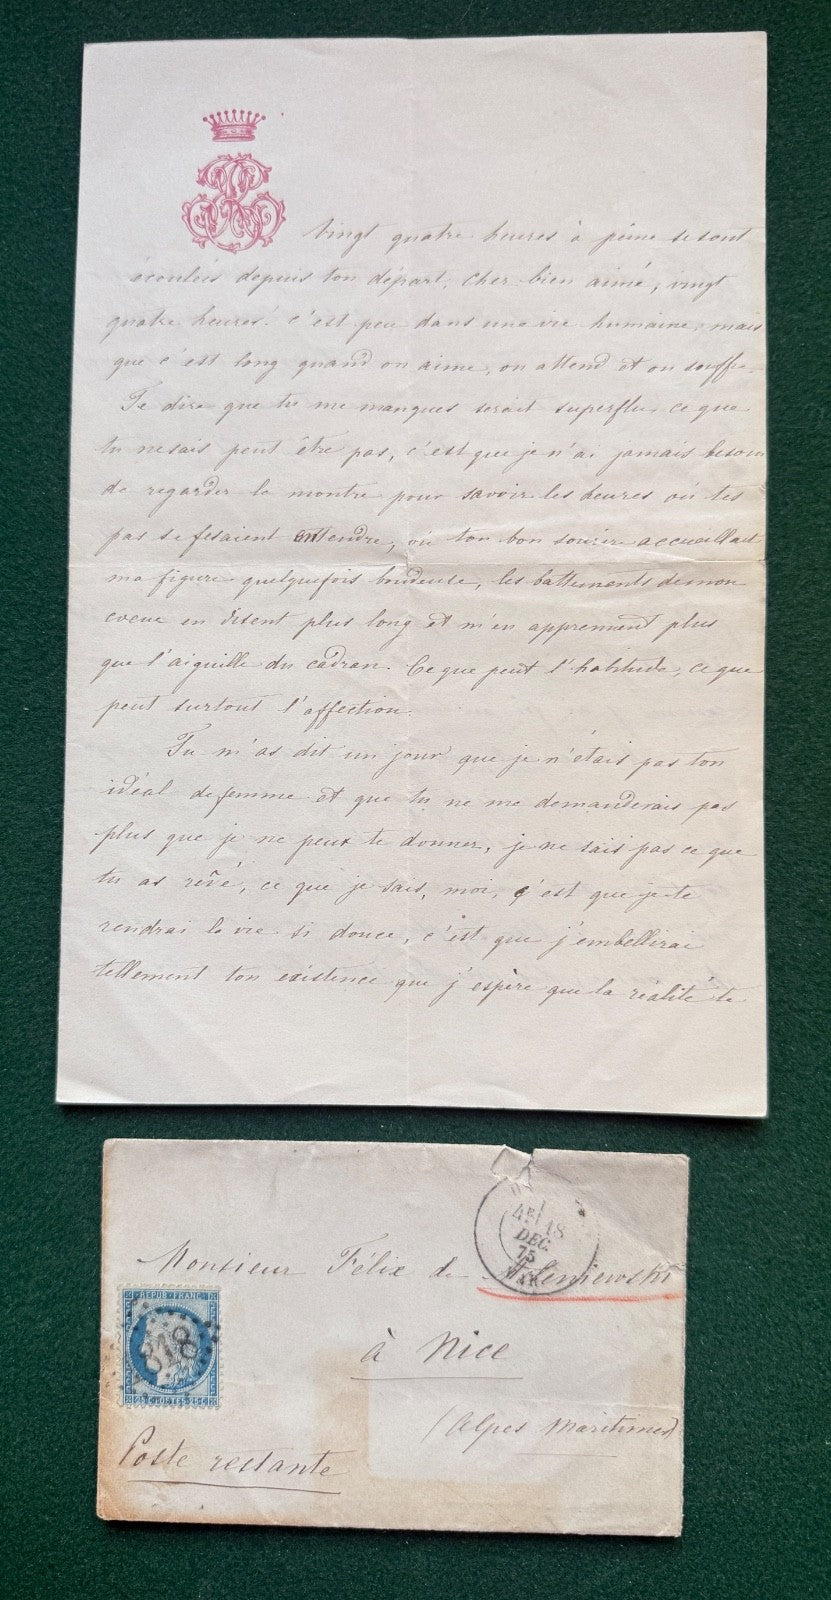 Vingt quatre heures à peine se sont
écoulées depuis ton départ, cher bien aimé, vingt
quatre heures! c'est peu dans une vie humaine, mais
que c'est long quand on aime, on attend et on souffre.
Te dire que tu me manques serait superflu, ce que
tu ne sais peut être pas, c'est que je n'ai jamais besoin
de regarder la montre pour savoir les heures où tes
pas se fesaient entendre, où ton bon sourire accueillait
ma figure quelquefois boudeuse, les battements de mon
coeur en disent plus long et m'en apprennent plus
que l'aiguille du cadran. Ce que peut l'habitude, ce que
peut surtout l'affection.
Tu m'as dit un jour que je n'étais pas ton
idéal de femme et que tu ne me demanderais pas
plus que je ne peux te donner, je ne sais pas ce que
tu as rêvé, ce que je sais, moi, c'est que je te
rendrai la vie si douce, c'est que j'embellirai
tellement ton existence que j'espère que la réalité te
4E 18
DEC.
75
Monsieur Félix de
REPUB. FRANC.
818
25 C. POSTES 25 C.
à Nice
(Alpes Maritimes)
Poste restante